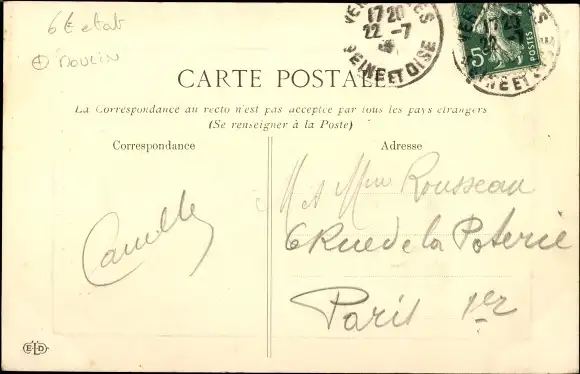 6€ etat
+ MOULIN
17 20
22 -7
SEINE ET OISE
5c
17 20
CARTE POSTALE
La Correspondance au recto n'est pas acceptée par tous les pays étrangers
(Se renseigner à la Poste)
Correspondance
Adresse
Camille
M et Mme Rousseau
6 Rue de la Poterie
Paris 1er
ELD